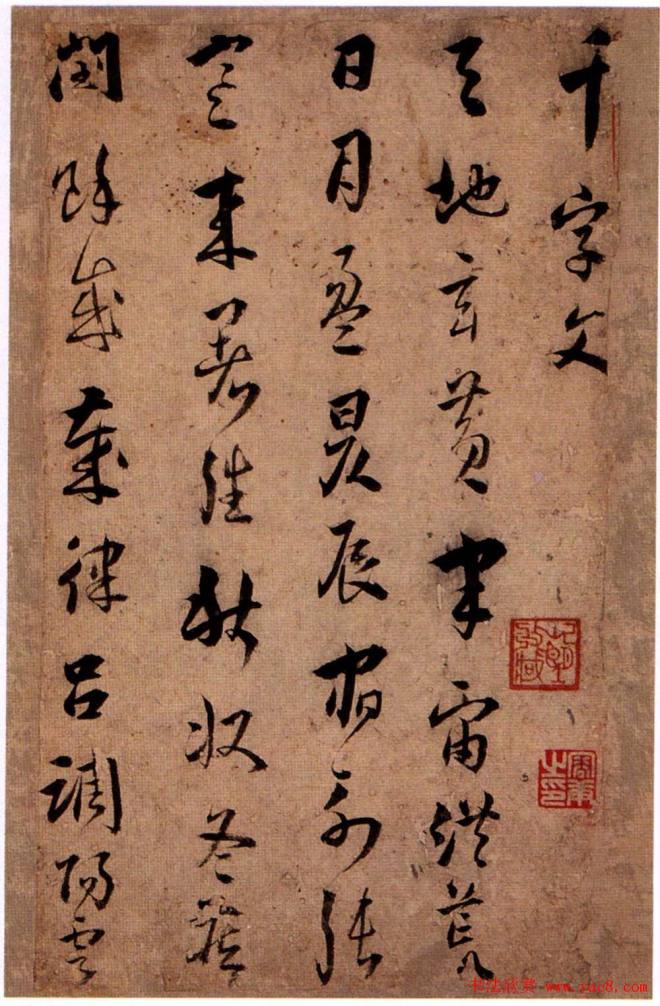 千字文
天地玄黄宇宙洪荒
日月盈昃辰宿列張
寒来暑往秋収冬藏
閏餘成歲律吕調陽雲
书法欣赏 www.yac8.com